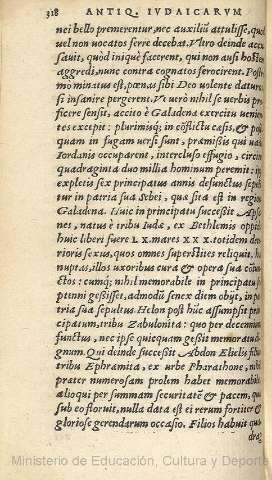 318 ANTIQ. IVDAICARVM
nei bello premerentur, nec auxiliū attulisse, quod
uel non uocatos ferre decebat. Vltro deinde accu
sauit, quòd iniquè facerent, qui non ausi hostem
aggredi, nunc contra cognatos ferocirent. Postre
mo minatus est, pœnas sibi Deo uolente daturos,
si insanire pergerent. Vt uerò nihil se uerbis pro
ficere sensit, accito è Galadena exercitu uenien
tes excepit: plurimisq; in cōflictu cæsis, & post
quam in fugam uersi sunt, præmissis qui uada
Iordanis occuparent, intercluso effugio, circiter
quadraginta duo millia hominum peremit: ipse
expletis sex principatus annis defunctus sepeli
tur in patria sua Sebei, quæ sita est in regione
Galadena. Huic in principatu successit Apsa
nes, natus è tribu Iudæ, ex Bethlemis oppido.
huic liberi fuere LX. mares XXX. totidem dete
rioris sexus, quos omnes superstites reliquit,
nuptas, illos uxoribus cura & opera sua
ctos: cumq; nihil memorabile in principatu
ptenni gessisset, admodū senex diem obijt, in pa
tria sua sepultus. Helon post hūc assumpsit prin
cipatum, tribu Zabulonita: quo per decennium
functus, nec ipse quicquam gessit memoratu di
gnum. Qui deinde successit Abdon Elielis filius
tribu Ephramita, ex urbe Pharathone, nihil
præter numerosam prolem habet memorabile
alioqui per summam securitatē & pacem, quæ
sub eo floruit, nulla data est ei rerum fortiter &
gloriose gerendarum occasio. Filios habuit qua
dra
Ministerio de Educación, Cultura y Deporte